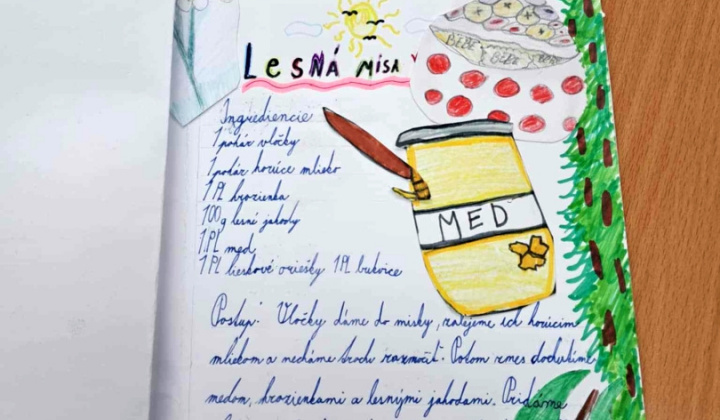 LESNÁ MISA
BEBE BEBE BEBE
Ingrediencie
1 pohár vločky
1 pohár horúce mlieko
1 PL hrozienka
100g lesné jahody
1 PL med
1 PL lieskové oriešky 1 PL bukvice
MED
Postup: Vločky dáme do misky, zalejeme ich horúcim
mliekom a necháme trochu rozmočiť. Potom zmes dochutíme
medom, hrozienkami a lesnými jahodami. Pridáme